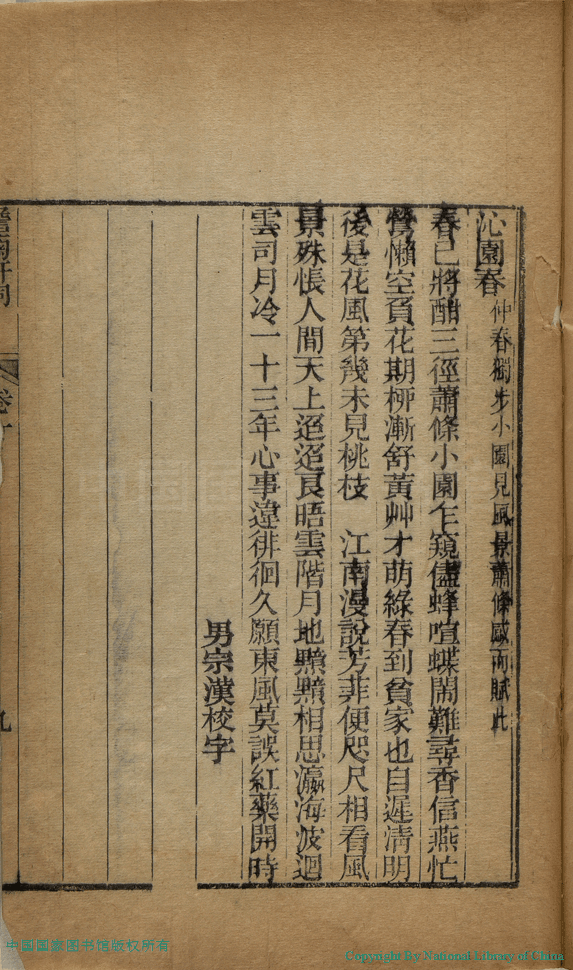 沁園春 仲春獨步小園見風景蕭條感而賦此
春已將酣三徑蕭條小園乍窺儘蜂喧蝶鬧難尋香信燕忙
鶯懶空負花期柳漸舒黃艸才萌綠春到貧家也自遲淸明
後是花風第幾未見桃枝　江南漫說芳菲便咫尺相看風
景殊悵人間天上迢迢良晤雲階月地黯黯相思瀛海波迴
雲司月冷一十三年心事違徘徊久願東風莫誤紅藥開時
男宗漢校字
卷十
九
中國國家图书馆版权所有
Copyright By National Library of China